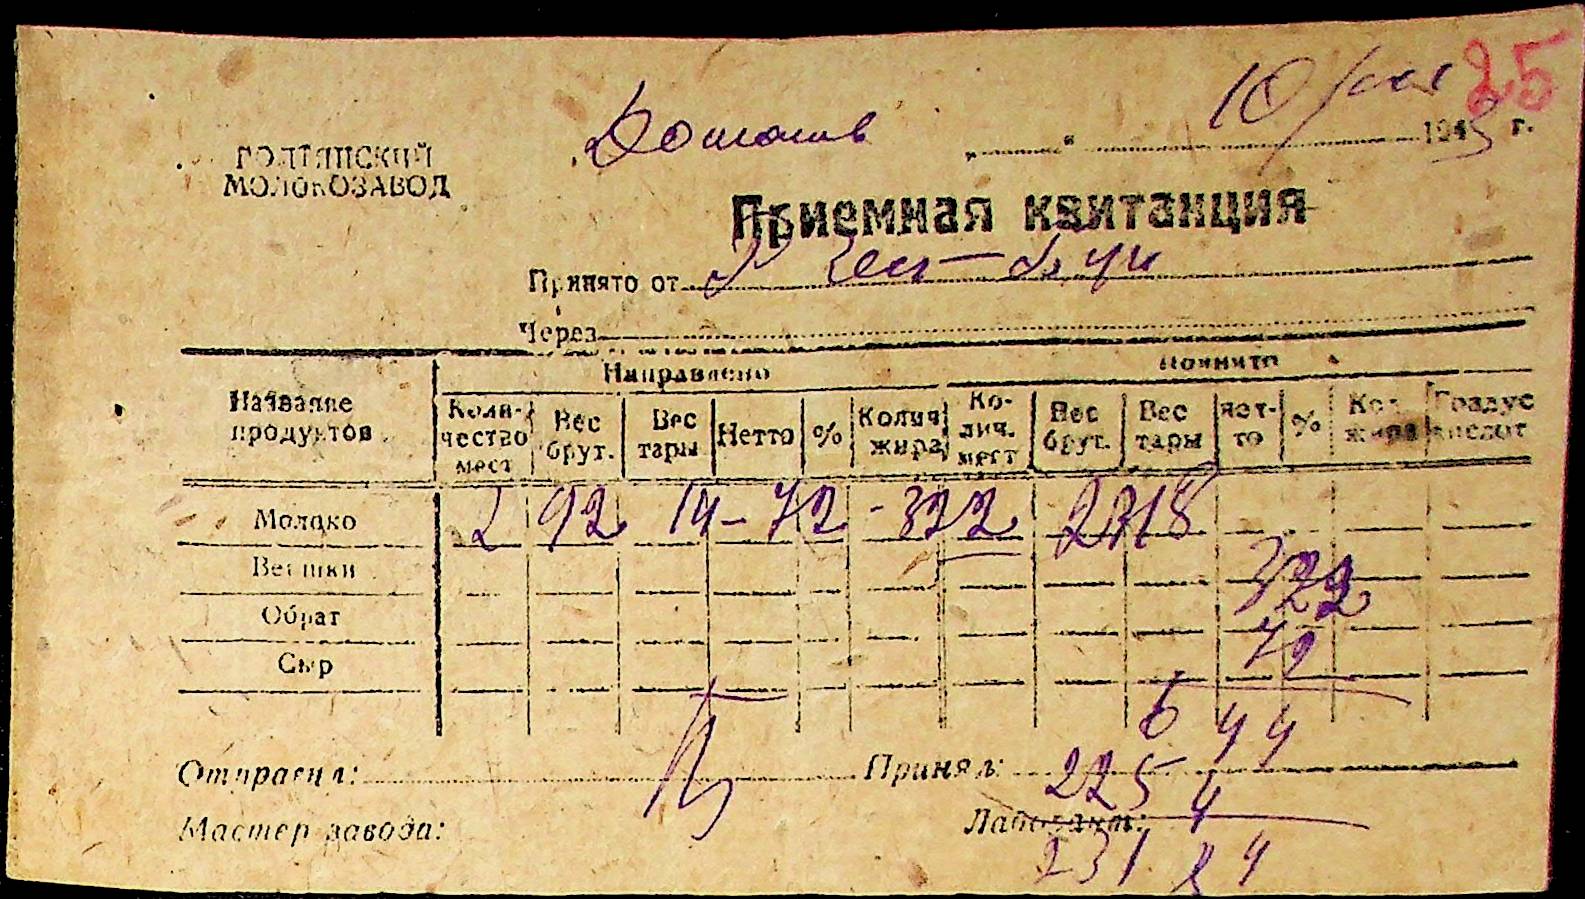 25
10/
194 г.
ГОЛТЯНСКИЙ
МОЛОКОЗАВОД
Приемная квитанция
Принято от
Через
Направлено Принято
Название продуктов Количество мест Вес брут. Вес тары Нетто % Колич жира Колич. мест Вес брут. Вес тары Нетто % Кол. жира Градус кислот
Молоко 2 92 14 - 72 - 322 2318
Вершки
322
Обрат
72
Сыр
6 44
Отправил: Принял: 225 4
Мастер завода: Лаборант:
231 84